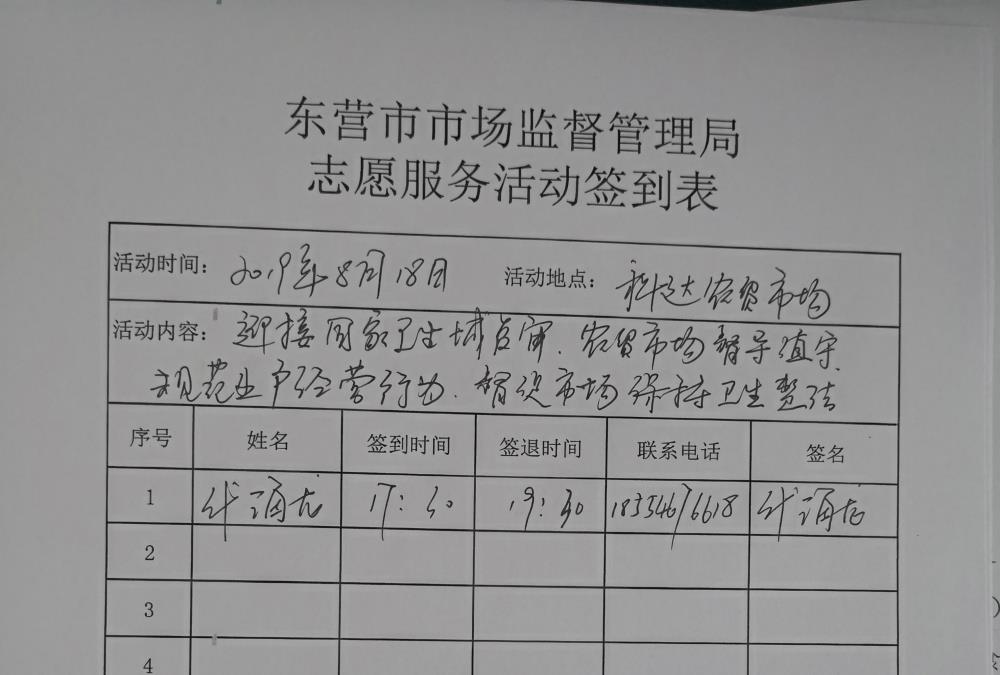 东营市市场监督管理局
志愿服务活动签到表
活动时间： 2019年8月18日 活动地点： 科达农贸市场
活动内容： 迎接国家卫生城复审、农贸市场督导值守
规范业户经营行为、督促市场保持卫生整洁
序号 姓名 签到时间 签退时间 联系电话 签名
1 代海龙 17：30 19：30 18354676618 代海龙
2
3
4